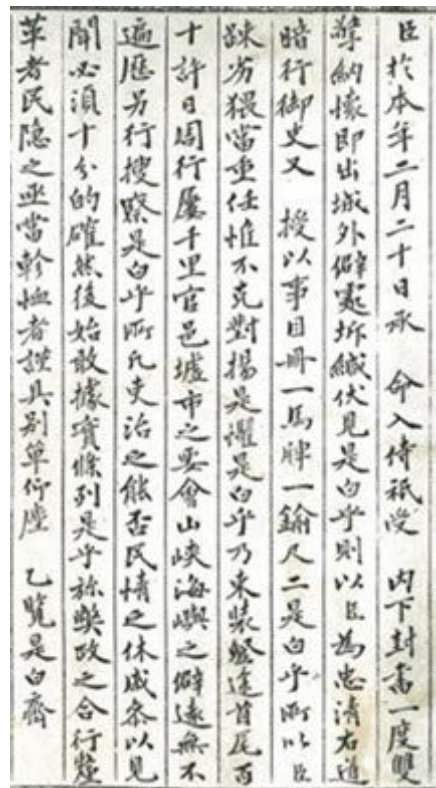 臣於本年二月二十日承　命入侍祇受　內下封書一度雙
擎納懷卽出城外僻處坼緘伏見是白乎則以臣爲忠淸右道
暗行御史又　授以事目冊一馬牌一鍮尺二是白乎所以臣
踈劣猥當重任惟不克對揚是懼是白乎乃束裝發途首尾百
十許日周行屢千里官邑墟市之要會山峽海嶼之僻遠無不
遍歷另行搜察是白乎所凡吏治之能否民情之休戚叅以見
聞必須十分的確然後始敢據實條列是乎於弊政之合行釐
革者民隐之亟當軫恤者謹具別單仰塵　乙覽是白齊